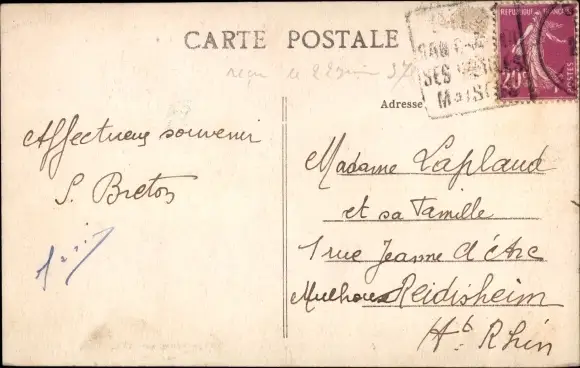 CARTE POSTALE
reçu le 22 juin 37
Adresse
RÉPUBLIQUE FRANÇAISE
20c
POSTES
SES
Affectueux souvenir
S. Breton
Madame Laplaud
et sa famille
1 rue Jeanne d'Arc
Mulhouse Reidisheim
Ht Rhin